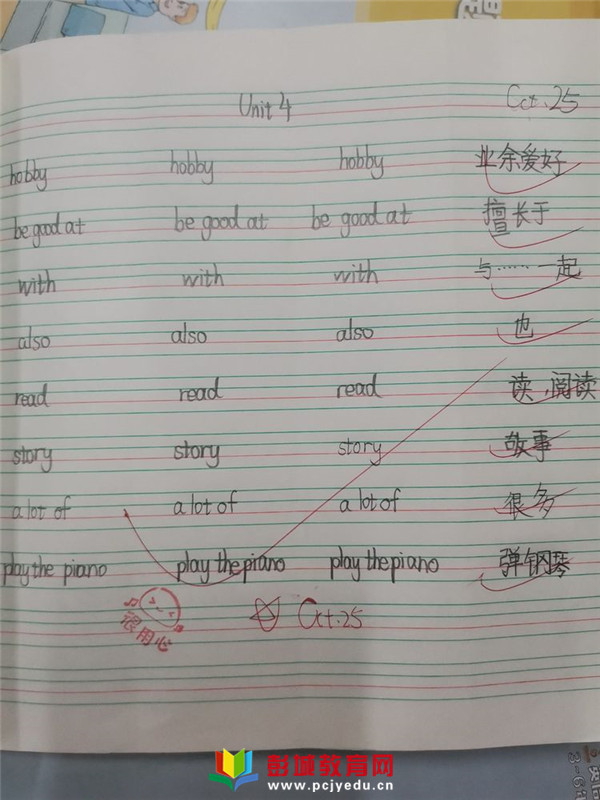 Unit 4 Oct. 25
hobby hobby hobby 业余爱好
be good at be good at be good at 擅长于
with with with 与……一起
also also also 也
read read read 读,阅读
story story story 故事
a lot of a lot of a lot of 很多
play the piano play the piano play the piano 弹钢琴
很用心
Oct. 25
彭城教育网
www.pcjyedu.cn